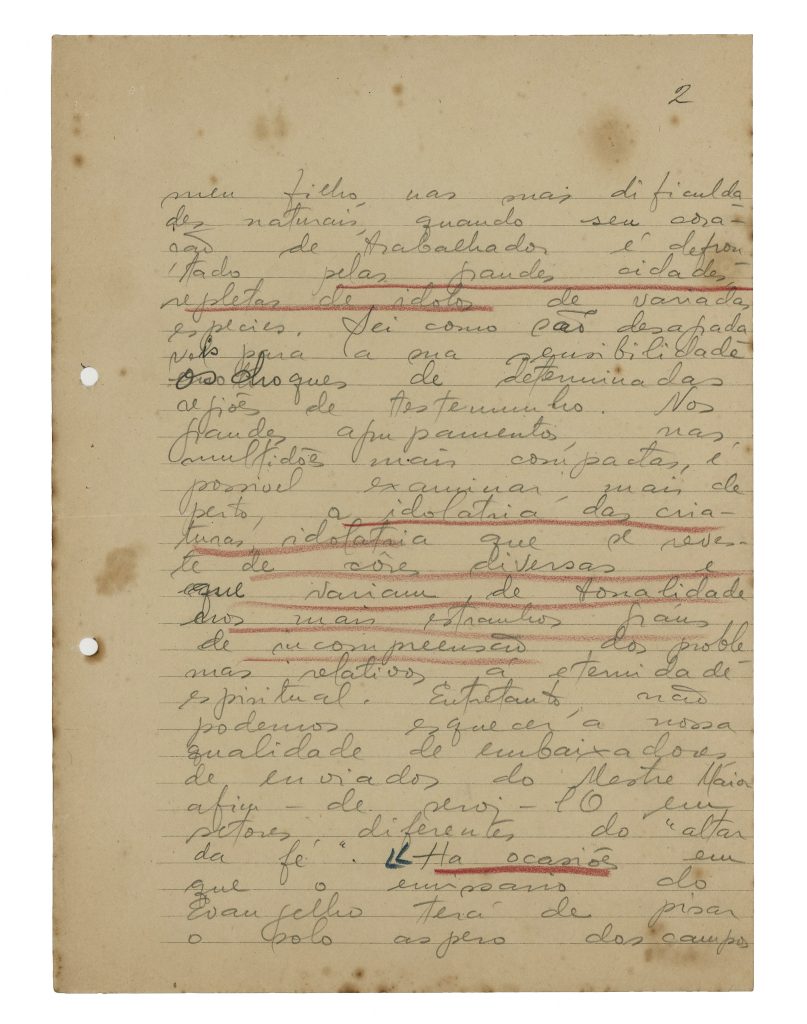 2
meu filho, nas mais dificulda
des naturais, quando seu cora-
ção de trabalhador é defron
tado pelas grandes cidades,
repletas de idolos de variadas
especies. Sei como são desagrada
veis para a sua sensibilidade
os choques de determinadas
regiões de testemunho. Nos
grandes agrupamentos, nas
multidões mais compactas, é
possivel examinar, mais de
perto, a idolatria das cria-
turas, idolatria que se reves-
te de côres diversas e
que variam de tonalidade
nos mais estranhos gráus
de incompreensão dos proble
mas relativos á eternidade
espiritual. Entretanto, não
podemos esquecer a nossa
qualidade de embaixadores
de enviados do Mestre Máior
afim-de servi-lO em
setores diferentes do "altar
da fé". << Ha ocasiões em
que o emissario do
Evangelho terá de pisar
o solo aspero dos campos